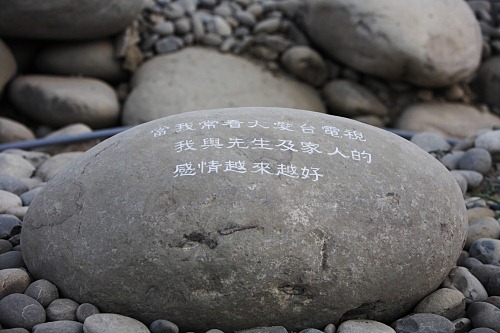 當我常看大愛台電視
我與先生及家人的
感情越來越好